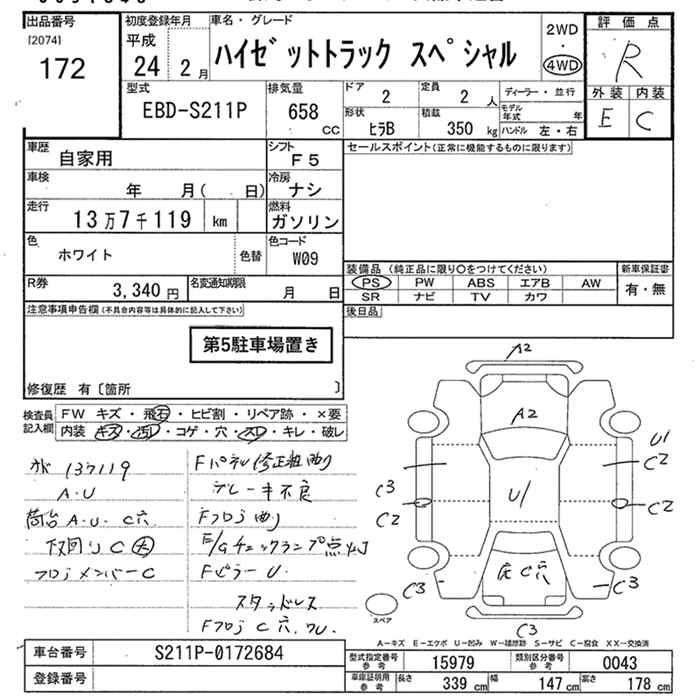 出品番号 初度登録年月 車名・グレード 評価点
[2074] 平成 2WD
172 24 2月 ハイゼットトラック スペシャル ・ R
4WD
型式 排気量 ドア 定員 ディーラー・並行 外装 内装
EBD-S211P 658 2 2 人 モデル年式 年 E C
CC 形状 ヒラB 積載 350 kg ハンドル 左・右
車歴 自家用 シフト F5 セールスポイント(正常に機能するものに限ります)
車検 年 月( 日) 冷房 ナシ
走行 13万7千119 km 燃料 ガソリン
色 ホワイト 色替 色コード W09
装備品 (純正品に限り〇をつけてください) 新車保証書
PS PW ABS エアB AW 有・無
SR ナビ TV カワ
R券 3,340 円 名変通知期限 月 日 後日品
注意事項申告欄(不具合内容等は具体的に記入して下さい)
第5駐車場置き
修復歴 有〔箇所 〕
検査員記入欄 FW キズ・飛石・ヒビ割・リペア跡・×要
内装 キズ・汚れ・コゲ・穴・スレ・キレ・破レ
137119
A.U
荷台 A.U. C穴
下回り C 大
フロアメンバー C
Fパネル修正粗 曲り
ブレーキ不良
Fフロア曲り
E/Gチェックランプ点灯
Fピラー U
スタッドレス
Fフロア C穴.
A2
A2
U1
C2
C3
C2
C2
U1
C穴
C3
C3
C3
スペア
A-キズ E-エクボ U-凹み W-補修跡 S-サビ C-腐食 XX-交換済
車台番号 S211P-0172684 型式指定番号 参考 15979 類別区分番号 参考 0043
登録番号 車庫証明用 参考 長さ 339 cm 幅 147 cm 高さ 178 cm